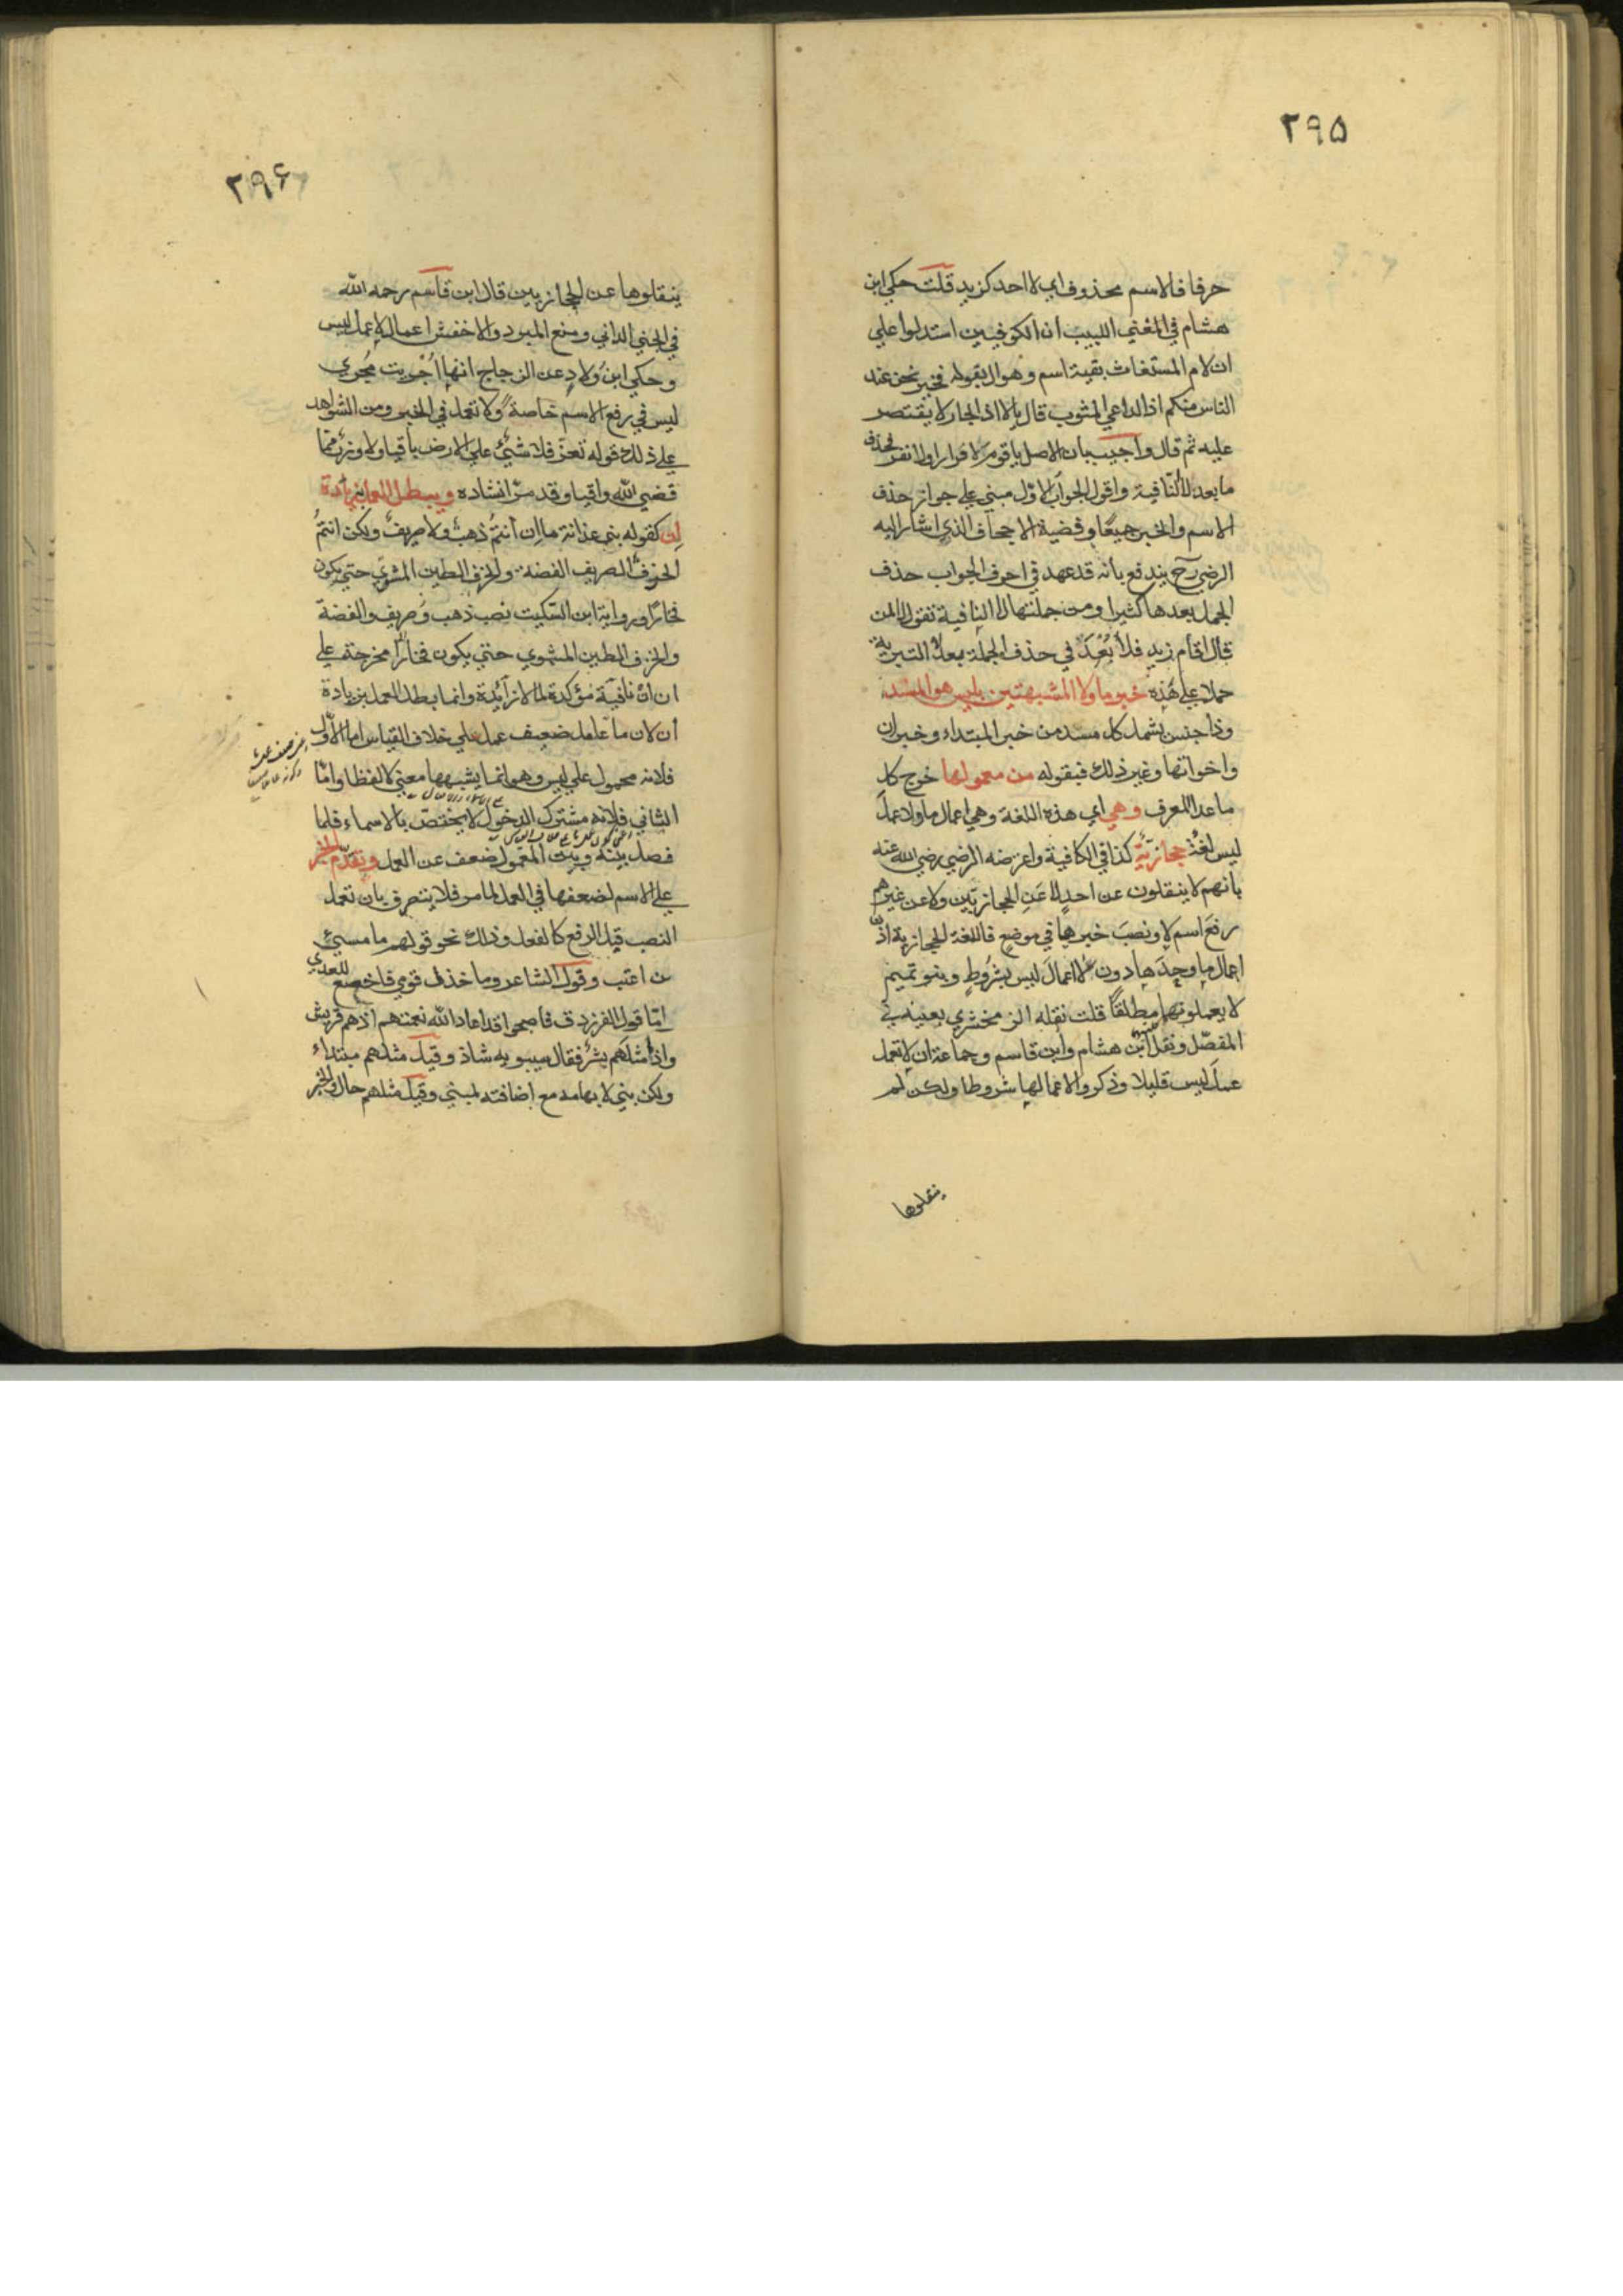 ۲۹۵
حرفا فالاسم محذوف اي لا احد كزيد قلت حكي ابن
هشام في المغني اللبيب ان الكوفيين استدلوا علي
ان لام المستغاث بقية اسم وهو ال بقوله فخير نحن عند
الناس منكم اذا الداعي المثوب قال يالا اذ الجار لا يقتصر
عليه ثم قال واجيب بان الاصل يا قوم لا فرار او لا نفر فحذف
ما بعد لا النافية واقول الجواب الاول مبني علي جواز حذف
الاسم والخبر جميعا وقضية الاجحاف الذي اشار اليه
الرضي رح يندفع بانه قد عهد في احرف الجواب حذف
الجمل بعدها كثيرا ومن جملتها لا النافية تقول لا لمن
قال اقام زيد فلا بُعْدَ في حذف الجملة بعد لا التبرية
حملا علي هذه خبر ما ولا المشبهتين بليس هو المسند
وذا جنس يشمل كل مسند من خبر المبتداء وخبر ان
واخواتها وغير ذلك فبقوله من معمولها خرج كل
ما عدا المعرف وهي اي هذه اللغة وهي اعمال ما ولا عمل
ليس لغة حجازية كذا في الكافية واعرضه الرضي رضي الله عنه
بانهم لا ينقلون عن احد لا عَنِ الحجازيين ولا عن غيرهم
رفع اسم لا ونصب خبرها في موضع فاللغة الحجازية اذن
اعمال ما وحدها دون لا اعمال ليس بشروط وبنو تميم
لا يعملونهما مطلقا قلت نقله الزمخشري بعينه في
المفصّل ونقل ابن هشام وابن قاسم وجماعة ان لا تعمل
عمل ليس قليلا وذكروا لاعمالها شروطا ولكن لم
ينقلوها
۲۹۶
ينقلوها عن الحجازيين قال ابن قاسم رحمه الله
في الجني الداني ومنع المبرد والاخفش اعمال لا عمل ليس
وحكي ابن ولاد عن الزجاج انها اُجْرِيت مُجْري
ليس في رفع الاسم خاصة ولا تعمل في الخبر ومن الشواهد
علي ذلك قوله تعز فلا شيئ علي الارض باقيا ولا وزر مما
قضي الله واقيا وقد مرّ انشاده ويبطل العمل بزيادة
ان كقوله بني غدانة ما ان انتم ذهب ولا صريف ولكن انتم
الخزف الصريف الفضة والخزف الطين المشوي حتي يكون
فخارا ورواية ابن السكيت نصب ذهب وصريف والفضة
والخزف الطين المشوي حتي يكون فخارا مخرجة علي
ان انْ نافية مؤكدة لما لا زائدة وانما بطل العمل بزيادة
ان لان ما عامل ضعيف عمل علي خلاف القياس اما الاول
فلانه محمول علي ليس وهو انما يشبهها معني لا لفظا وامّا
الثاني فلانه مشترك الدخول لا يختصّ بالاسماء فلما
فصل بينه وبين المعمول ضعف عن العمل وتقدّم الخبر
علي الاسم لضعفها في العمل لما مر فلا يتصرف بان تعمل
النصب قبل الرفع كالفعل وذلك نحو قولهم ما مسيئ
من اعتب وقول الشاعر وما خذل قومي فاخضع للعدي
امّا قول الفرزدق فاصبحوا قد اعاد الله نعمتهم اذ هم قريش
واذ ما مثلهم بشر فقال سيبويه شاذ وقيل مثلهم مبتداء
ولكن بني لابهامه مع اضافته لمبني وقيل مثلهم حال والخبر